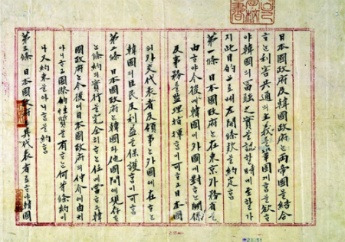 日本國政府及韓國政府는兩帝國을結合
ᄒᆞ는利害共通의主義를鞏固케ᄒᆞᆷ을欲ᄒᆞ
야韓國의富强之實을認ᄒᆞᆯ時에至ᄒᆞ기까
지此目的으로써左開條款을約定ᄒᆞᆷ
第一條 日本國政府는在東京外務省을
由ᄒᆞ야今後에韓國이外國에對ᄒᆞ는關係
及事務를監理指揮ᄒᆞᆷ이可ᄒᆞ고日本國
의外交代表者及領事는外國에在ᄒᆞ는
韓國의臣民及利益을保護ᄒᆞᆷ이可ᄒᆞᆷ
第二條 日本國政府는韓國과他國間에現存ᄒᆞ
는條約의實行을完全히ᄒᆞ는任에當ᄒᆞ고韓
國政府는今後에日本國政府의仲介에由치
아니ᄒᆞ고國際的性質을有ᄒᆞ는何等條約이
나又約束을아니ᄒᆞᆷ을約ᄒᆞᆷ
第三條 日本國政府는其代表者로ᄒᆞ야韓國